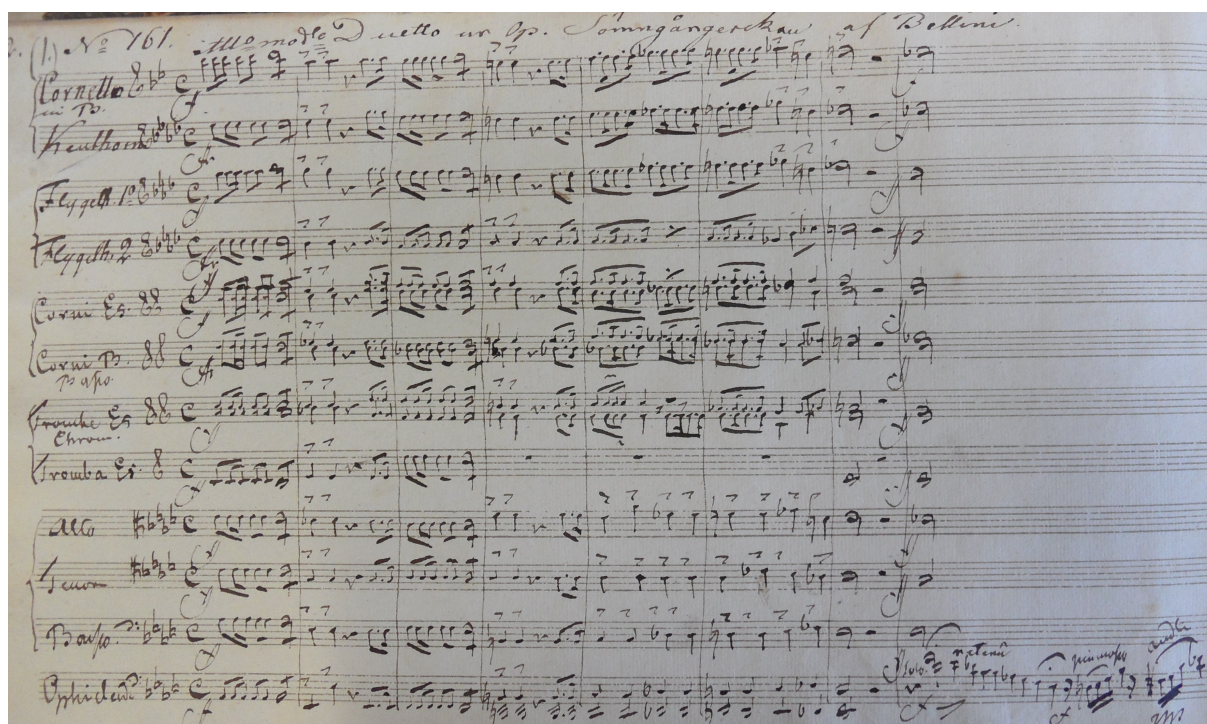 (1.) No 161. All° mod to Duetto ur Op. Sömngångerskan af Bellini.
Cornetto
in B.
Kenthorn
Flygelh. 1o
Flygelh. 2
Corni Es.
Corni B.
Basso.
Trombe Es
Chrom.
Tromba Es.
Alto
Tenor
Basso.
Solo
Ophicleid